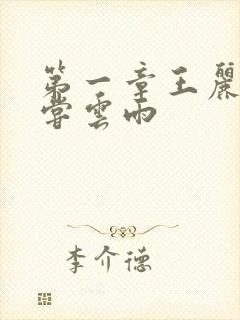 第一章王麗
嘗雲雨
李介德